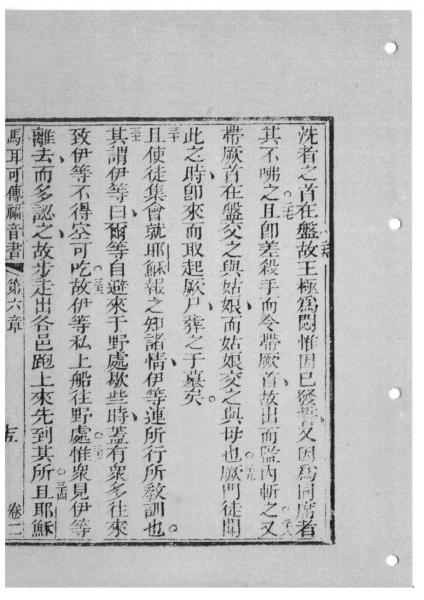 洗者之首在盤故王極為悶惟因已發誓又因為同席者
其不咈之且即差殺手而令帶厥首故出而監內斬之又
帶厥首在盤交之與姑娘而姑娘交之與母也厥門徒聞
此之時即來而取起厥尸葬之于墓矣
且使徒集會就耶穌報之知諸情伊等連所行所教訓也
其謂伊等曰爾等自避來于野處歇些時蓋有眾多往來
致伊等不得空可吃故伊等私上船往野處惟眾見伊等
離去而多認之故步走出各邑跑上來先到其所且耶穌
馬耳可傳福音書 第六章 卷二